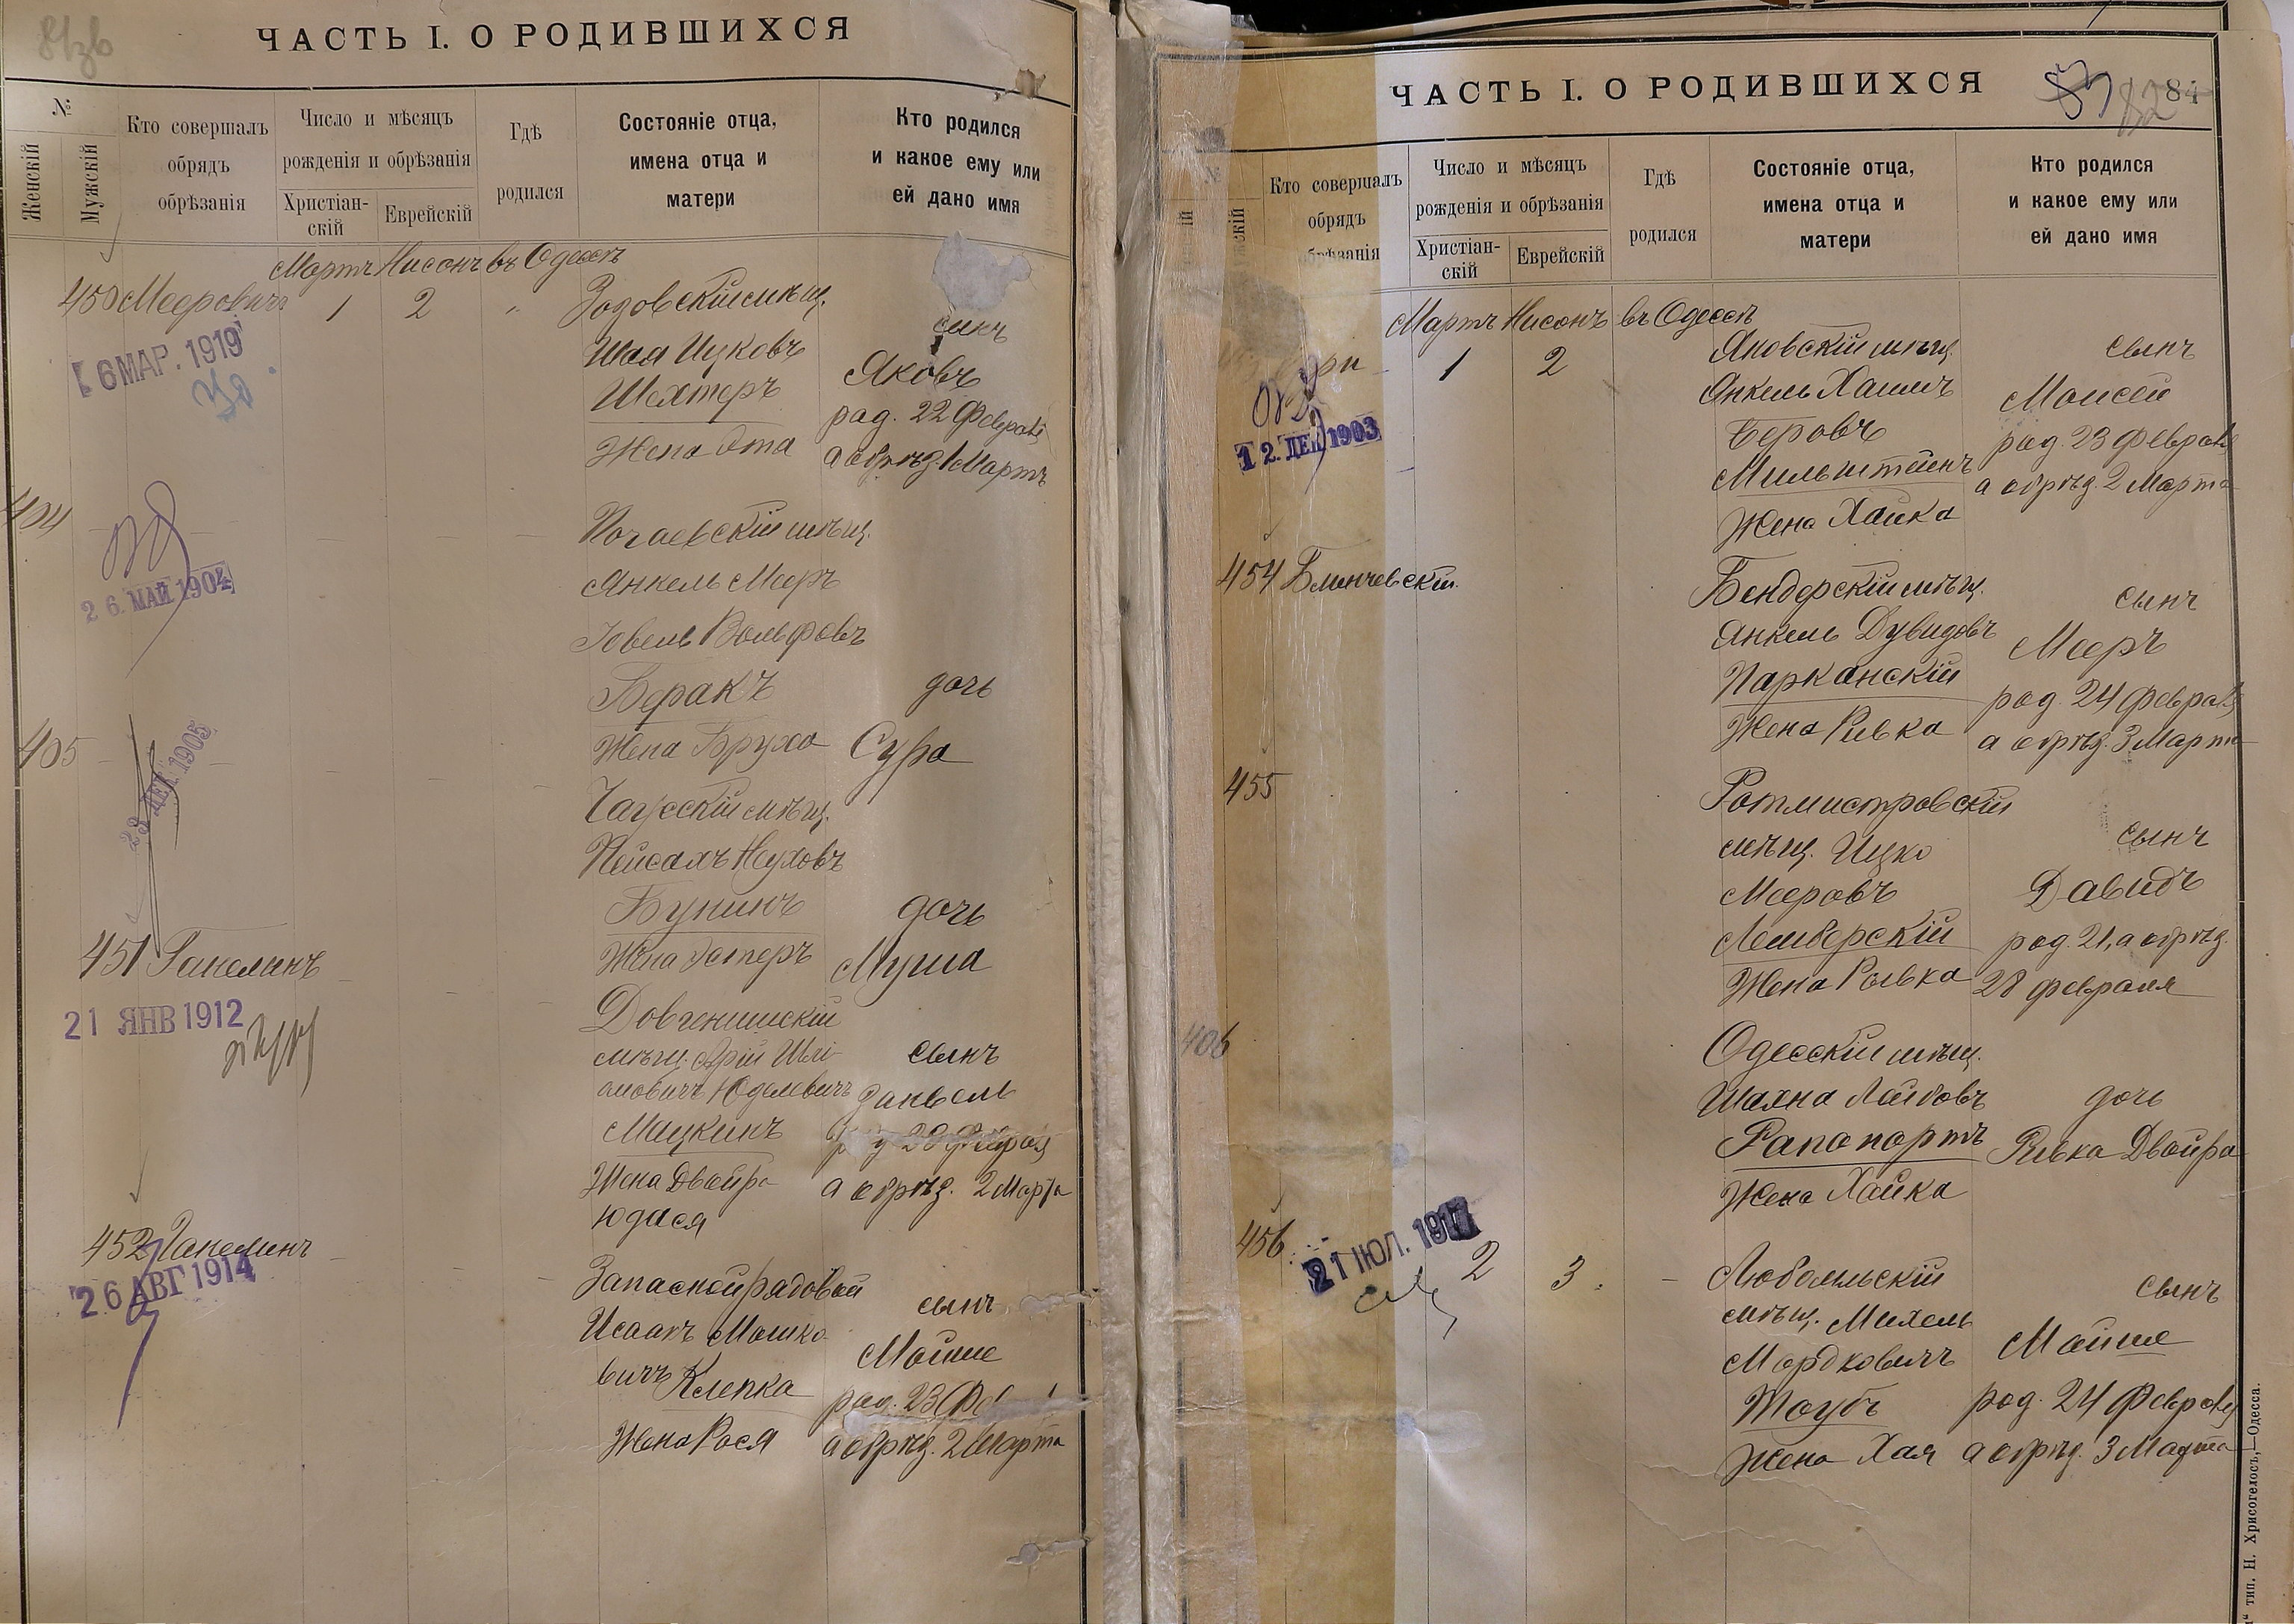 ЧАСТЬ I. О РОДИВШИХСЯ
№
Женскій
Мужскій
Кто совершалъ
обрядъ
обрѣзанія
Число и мѣсяцъ
рожденія и обрѣзанія
Христіан-
скій
Еврейскій
Гдѣ
родился
Состояніе отца,
имена отца и
матери
Кто родился
и какое ему или
ей дано имя
Мартъ Нисонъ въ Одессѣ
450 Мееровичъ
1 2
16 МАР. 1919
мѣщ.
Шая Ицковъ
Шехтеръ
Жена
сынъ
Яковъ
род. 22 Февраля
а обрѣз. 1 Мартъ
404
26. МАЙ 1904
мѣщ.
Янкель Мееръ
Іовель Вольфовъ
Беракъ
Жена Бруха
дочь
Сура
405
ДЕК 1905
Чаусскій мѣщ.
Пейсахъ Неуховъ
Бунинъ
Жена Эстеръ
дочь
Муша
451 Ганелинъ
21 ЯНВ 1912
мѣщ. Арій
Юделевичъ
Мицкинъ
Жена Двойра
Юдася
сынъ
Занвель
а обрѣз. 2 Марта
452 Ганелинъ
26 АВГ 1914
Запасной рядовой
Исаакъ Мошко-
вичъ Клепка
Жена Рося
сынъ
Мойше
род. 23
а обрѣз. 2 Марта
ЧАСТЬ I. О РОДИВШИХСЯ
83 82 84
№
Кто совершалъ
обрядъ
Число и мѣсяцъ
рожденія и обрѣзанія
Христіан-
скій
Еврейскій
Гдѣ
родился
Состояніе отца,
имена отца и
матери
Кто родился
и какое ему или
ей дано имя
Мартъ Нисонъ въ Одессѣ
1 2
12. ДЕК 1903
Яновскій мѣщ.
Янкель Хаимъ
Беровъ
Мильштейнъ
Жена Хайка
сынъ
Моисей
род. 23 Февраля
а обрѣз. 2 Марта
454 Блинчевскій
Бендерскій мѣщ.
Янкель Дувидовъ
Парканскій
Жена Ривка
сынъ
Мееръ
род. 24 Февраля
а обрѣз. 3 Марта
455
Ротмистровскій
мѣщ. Ицко
Мееровъ
Лембергскій
Жена Рывка
сынъ
Давидъ
род. 21, а обрѣз.
28 февраля
406
Одесскій мѣщ.
Шахна Лейбовъ
Рапопортъ
Жена Хайка
дочь
Ривка Двойра
456
21 ІЮЛ. 1917
2 3
Любомльскій
мѣщ. Михель
Мордковичъ
Таубъ
Жена Хая
сынъ
Мойше
род. 24 Февраля
а обрѣз. 3 Марта
тип. Н. Хрисогелосъ,—Одесса.